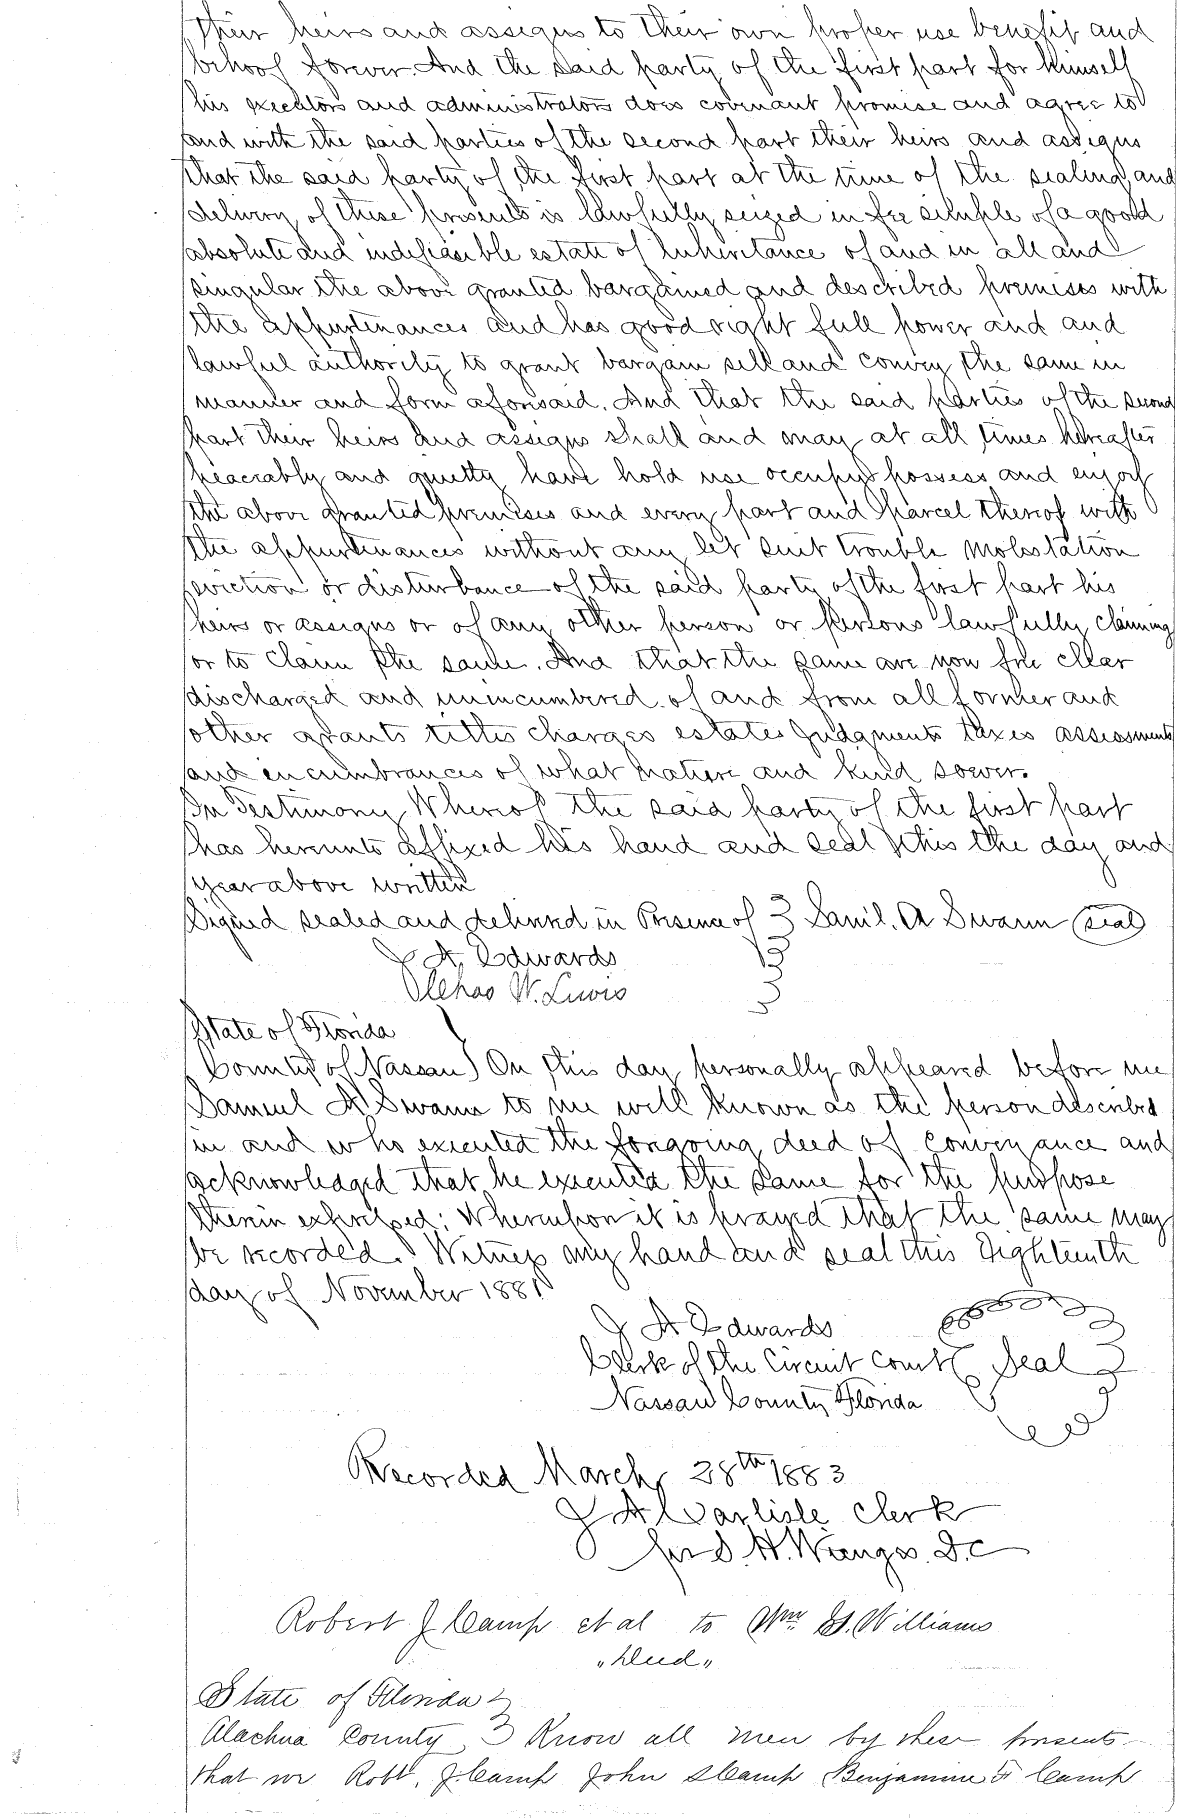 their heirs and assigns to their own proper use benefit and
behoof forever. And the said party of the first part for himself
his executors and administrators does covenant promise and agree to
and with the said parties of the second part their heirs and assigns
that the said party of the first part at the time of the sealing and
delivery of these presents is lawfully seized in fee simple of a good
absolute and indefiasible estate of Inheritance of and in all and
singular the above granted bargained and described premises with
the appurtenances and has good right full power and and
lawful authority to grant bargain sell and convey the same in
manner and form aforesaid. And that the said parties of the second
part their heirs and assigns shall and may at all times hereafter
peaceably and quietly have hold use occupy possess and enjoy
the above granted premises and every part and parcel thereof with
the appurtenances without any let suit trouble molestation
eviction or disturbance of the said party of the first part his
heirs or assigns or of any other person or persons lawfully claiming
or to claim the same. And that the same are now free clear
discharged and unincumbered of and from all former and
other grants titles charges estates Judgments taxes assessments
and encumbrances of what nature and kind soever.
In Testimony Whereof the said party of the first part
has hereunto affixed his hand and seal this the day and
year above written
Signed sealed and delivered in Presence of Saml. A Swann (seal)
J A. Edwards
W. Lewis
State of Florida
County of Nassau) On this day personally appeared before me
Samuel A Swann to me well known as the person described
in and who executed the forgoing deed of conveyance and
acknowledged that he executed the same for the purpose
therein expressed; Whereupon it is prayed that the same may
be recorded. Witness my hand and seal this Eighteenth
day of November 1881
J A Edwards
Clerk of the Circuit Court Seal
Nassau County Florida
Recorded March 28th 1883
J A Carlisle Clerk
per S. H. Wienges. D.C
Robert J Camp et al to Wm G. Williams
"Deed"
State of Florida
Alachua County Know all men by these presents
that we Robt. J. Camp John S Camp Benjamine F Camp